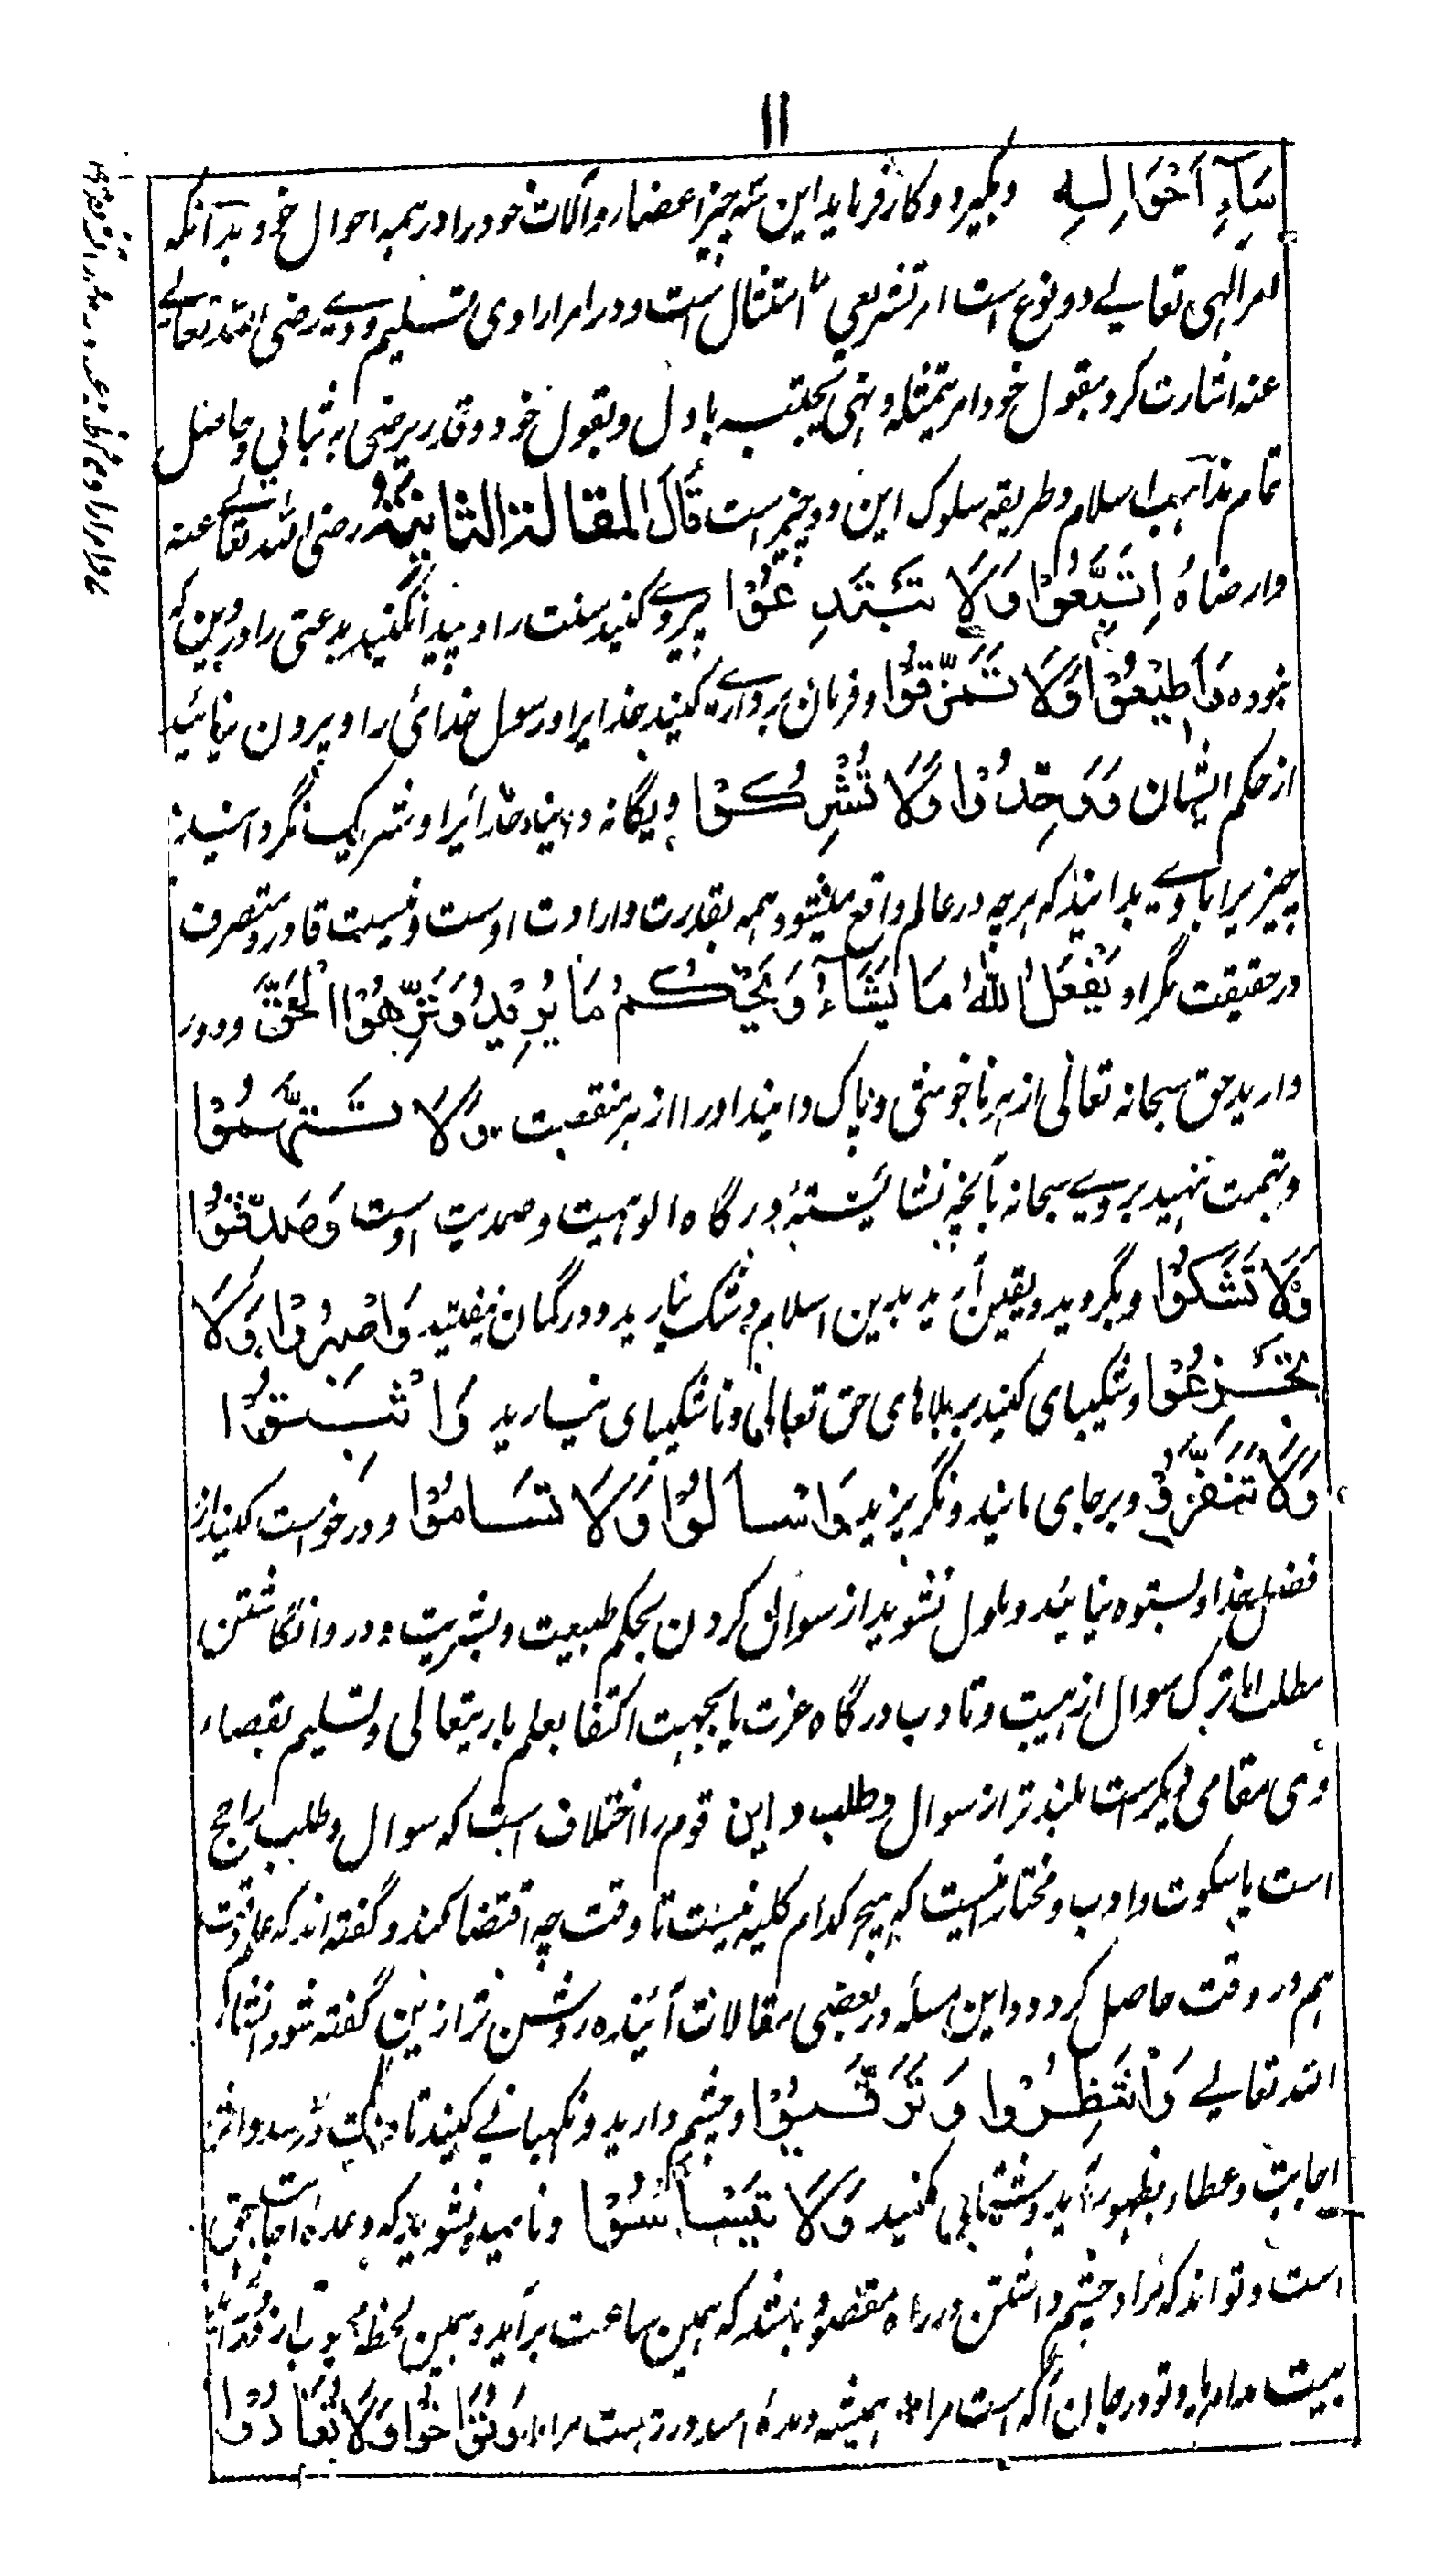 ۱۱
سَآءِ اَحْوَالِهِ وبگیرد و کار فرماید این سه چیز اعضا و آلات خود را در همه احوال خود بدآنکه
امر الٰهی تعالے دو نوع است امر تشریعی امتثال است و در امر ارادی تسلیم و وے رضی اللہ تعالے
عنه اشارت کرد بقول خود امر یمتثله و نهی یجتنبه باول و بقول خود و قدر یرضی به بثانی و حاصل
تمام مذاهب اسلام و طریقه سلوک این دو چیز است قَالَ المقالة الثانیة رضی اللہ تعالے عنه
وارضاه اِتَّبِعُوْا وَلَا تَبْتَدِعُوْا پیروے کنید سنت را و پیدا نکنید بدعتی را در دین که
نبوده وَاَطِیْعُوْا وَلَا تَمَرَّقُوْا و فرمان بردارے کنید خدایرا و رسول خدائی را و بیرون نیائید
از حکم ایشان وَوَحِّدُوْا وَلَا تُشْرِكُوْا و یگانه دانید خدایرا و شریک نگردانید
چیزیرا با وے بدانید که هرچه در عالم واقع میشود همه بقدرت و ارادت اوست و نیست قادر و متصرف
در حقیقت مگر او یَفْعَلُ اللّٰهُ مَا یَشَآءُ وَیَحْكُمُ مَا یُرِیْدُ وَنَزِّهُوْا الْحَقَّ و دور
دارید حق سبحانه تعالٰی از هر ناخوشی و پاک دانید او را از هر منقصت وَلَا تَتَّهِمُوْا
و تهمت ننهید بر وے سبحانه بآنچه نشایسته درگاه الوهیت و صمدیت اوست وَصَدِّقُوْا
وَلَا تَشُكُّوْا و بگروید و یقین آرید بدین اسلام و شک نیارید و در گمان نیفتید وَاصْبِرُوْا وَلَا
تَجْزَعُوْا و شکیبای کنید بر بلاهای حق تعالٰی و ناشکیبای نیارید وَاثْبُتُوْا
وَلَا تَنْفِرُوْا و برجای مانید و نگریزید وَاسْأَلُوْا وَلَا تَسْأَمُوْا و درخواست کنید از
فضل خدا و بستوه نیائید و ملول نشوید از سوال کردن بحکم طبیعت و بشریت و در وانگاشتن
مطلب اما ترک سوال از هیبت و تادب درگاه عزت یا بجهت اکتفا بعلم باریتعالی و تسلیم بقضاء
وی مقامی دیگرست بلندتر از سوال و طلب و این قوم را اختلاف است که سوال و طلب راجح
است یا سکوت و ادب و مختار نیست که هیچ کدام کلیه نیست تا وقت چه اقتضا کند و گفته اند که علم وقت
هم در وقت حاصل گردد و این مسأله در بعضی مقالات آئینده روشن تر از نین گفته شود انشاء
اللہ تعالے وَانْتَظِرُوْا وَتَرَقَّبُوْا و چشم دارید و نگهبانے کنید تا وقت در رسد و اثر
اجابت و عطاء بظهور آید و شتابی مکنید وَلَا تَیْأَسُوْا و ناامید نشوید که وعده اجابت حق
است و تواند که مراد چشم داشتن در راه مقصود باشد که همین ساعت برآید و همین لحظه محبوب از در درآید
بیت مدام یاد تو در جان آگه است مرا همیشه دیده امید در ره است مرا وَتَوَاخَوْا وَلَا تَعَادَوْا